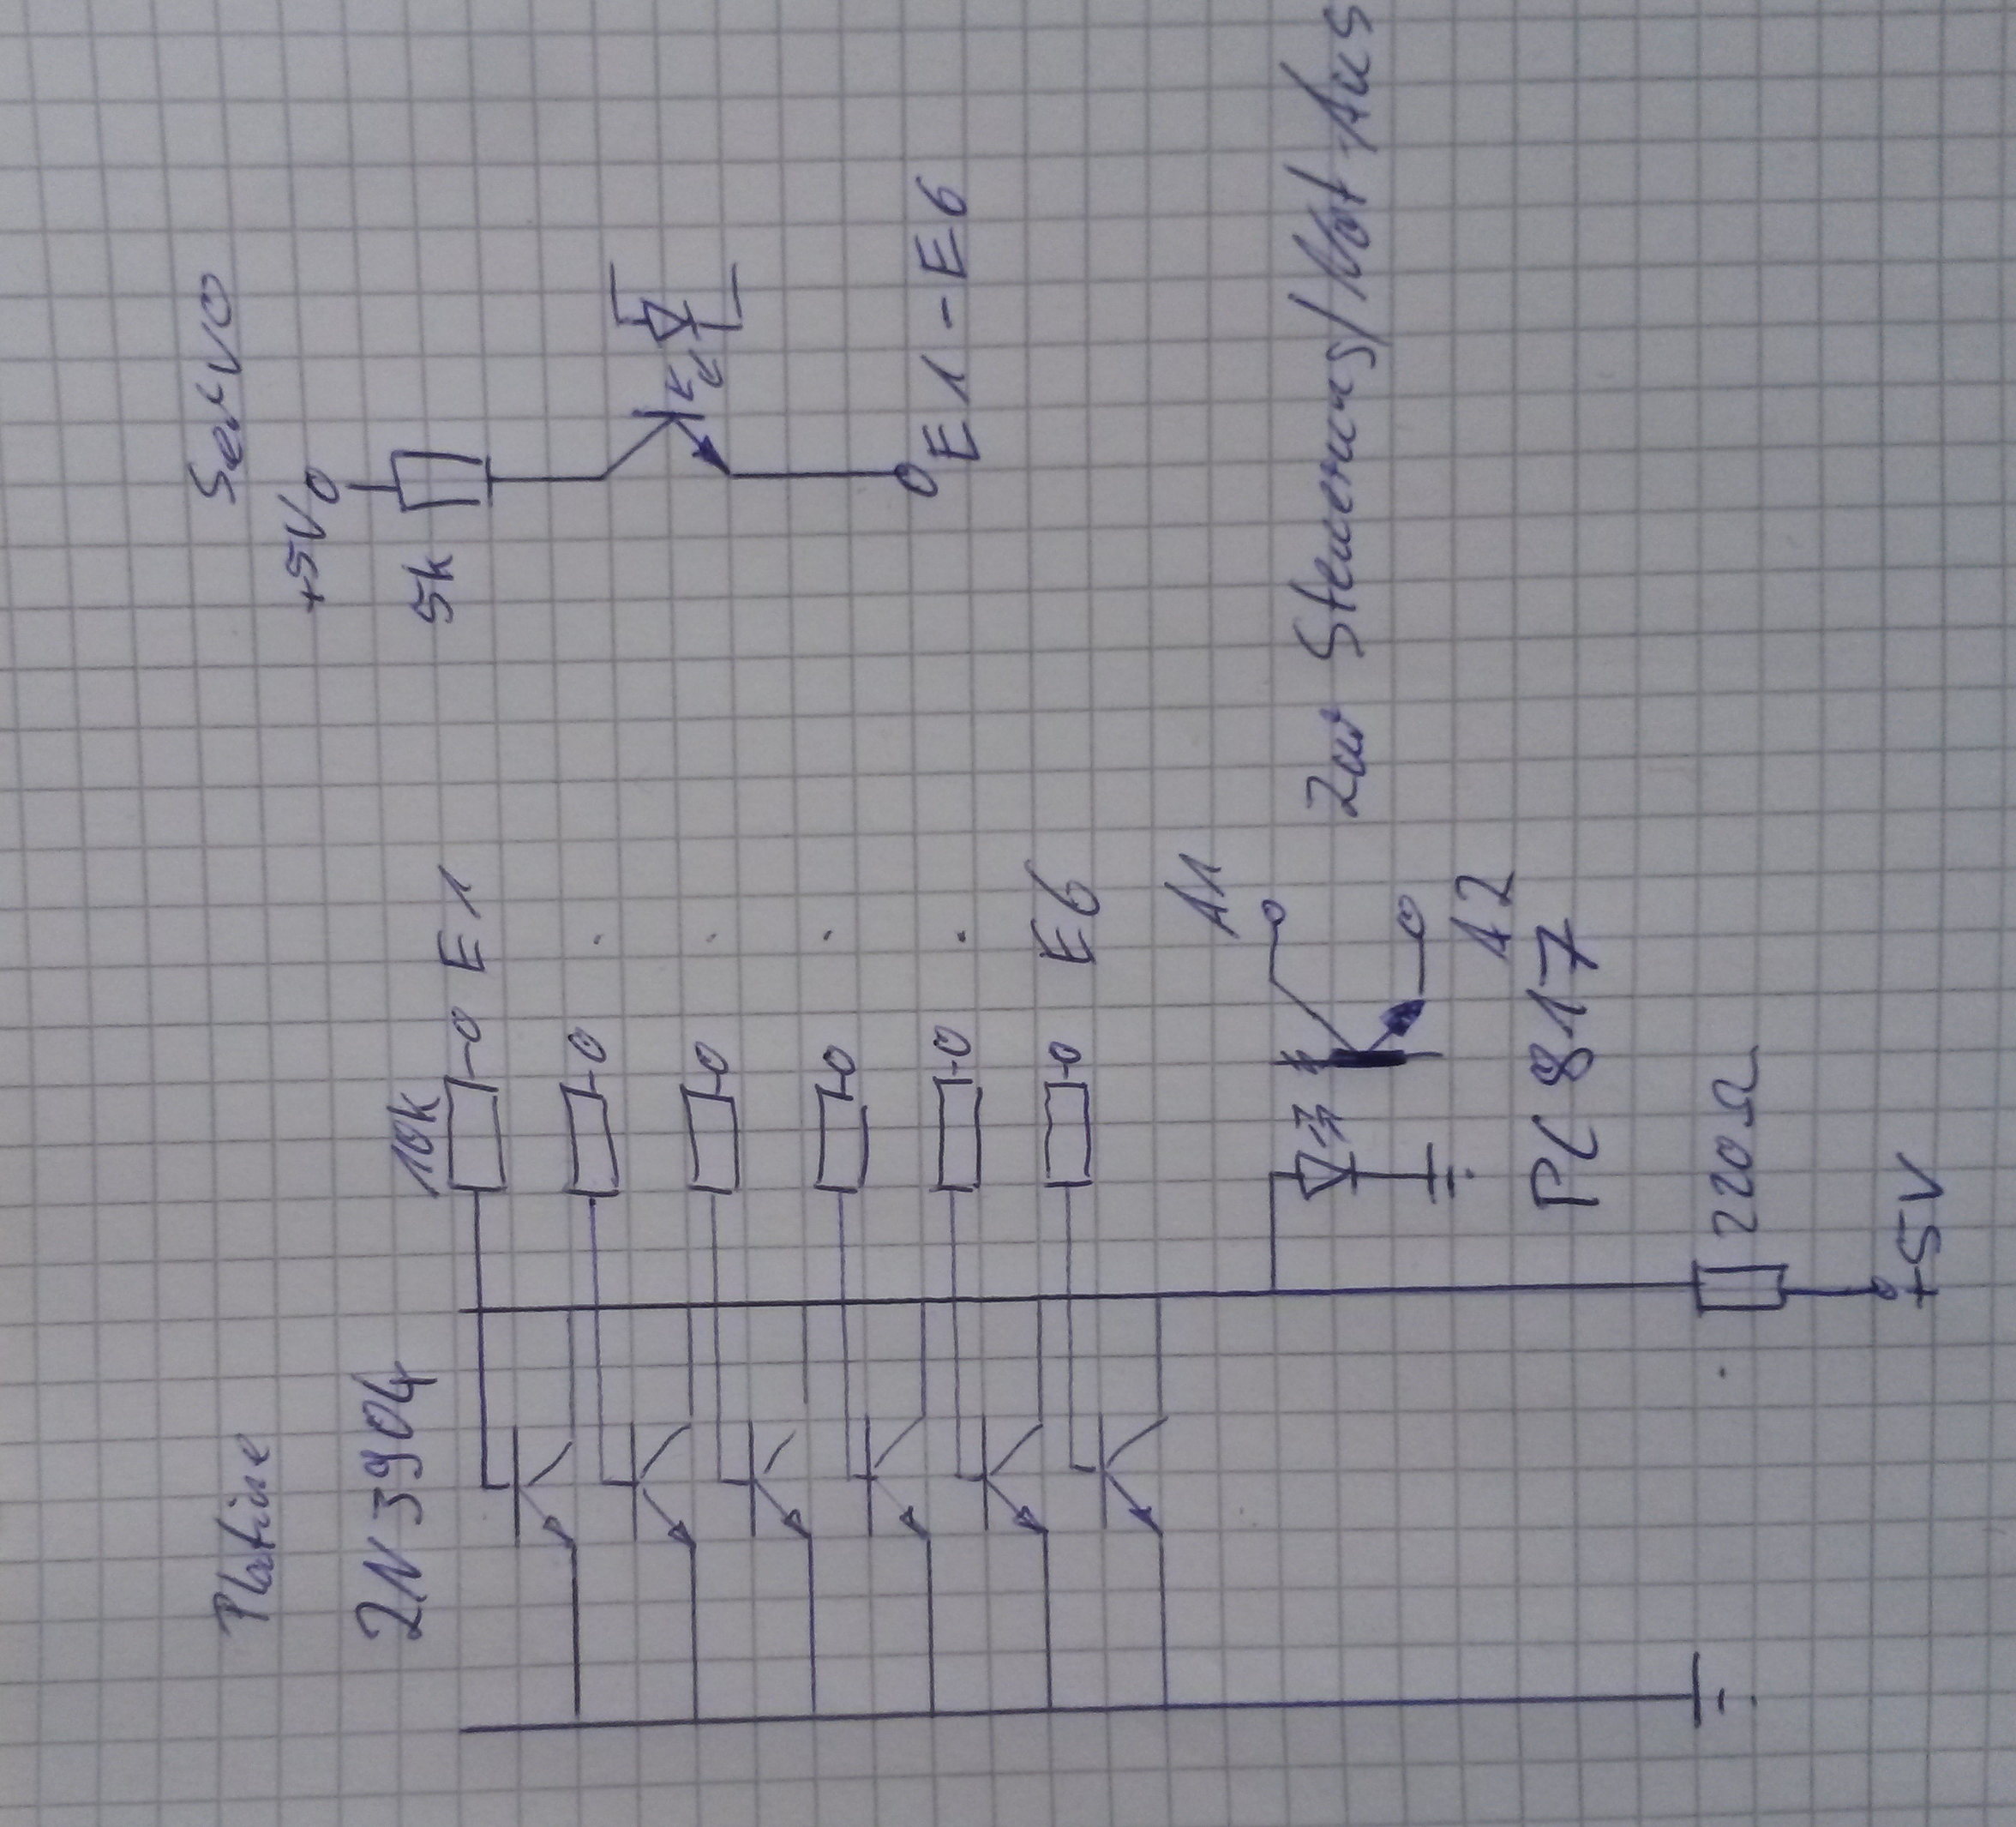 Platine
Servo
2N3904
10k
E1
.
.
.
.
E6
+5V
5k
E1-E6
A1
A2
PC817
Zur Steuerung/Not Aus
220Ω
+5V